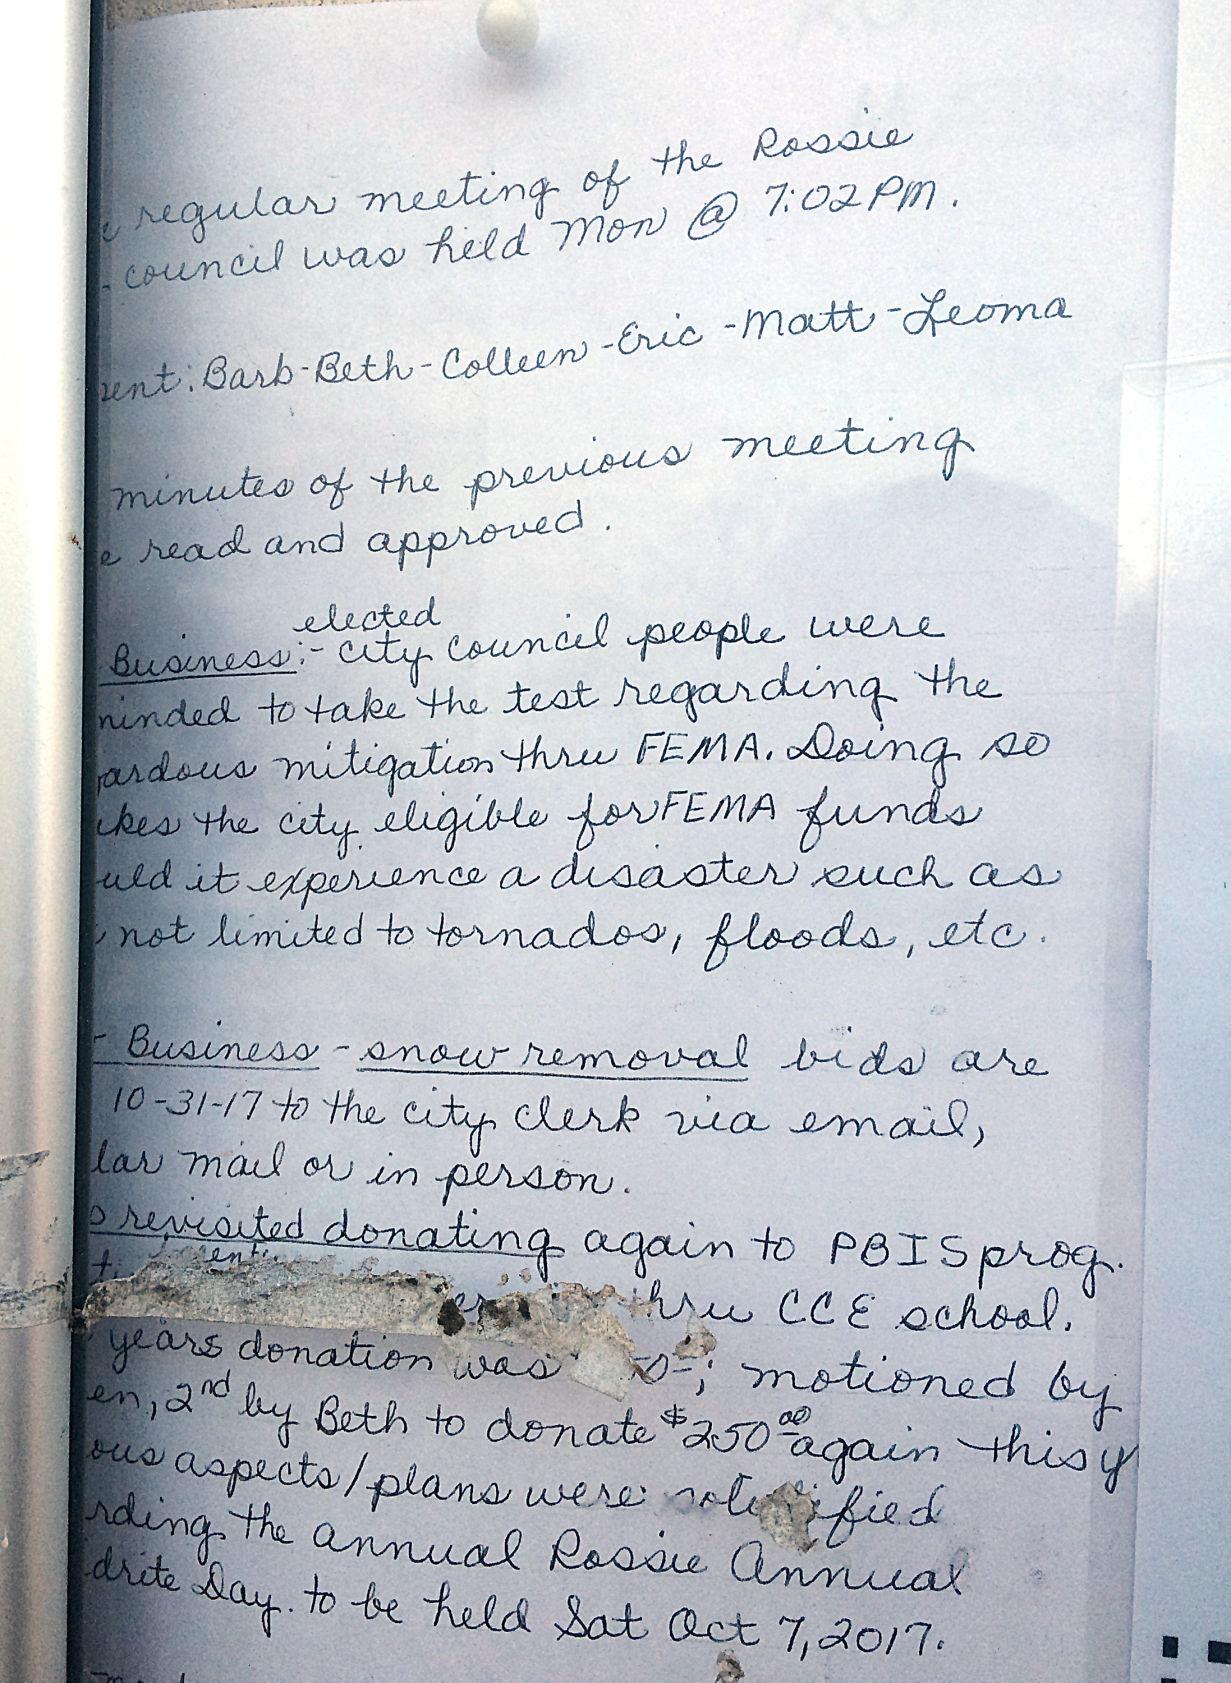 e regular meeting of the Rossie
- council was held Mon @ 7:02PM.
sent: Barb-Beth-Colleen-Eric-Matt-Leoma
minutes of the previous meeting
e read and approved.
elected
Business:- city council people were
minded to take the test regarding the
ardous mitigation thru FEMA. Doing so
akes the city eligible for FEMA funds
uld it experience a disaster such as
not limited to tornados, floods, etc.
- Business - snow removal bids are
10-31-17 to the city clerk via email,
lar mail or in person.
o revisited donating again to PBIS prog.
thru CCE school.
years donation was ; motioned by
en, 2nd by Beth to donate $250 00 again this y
ous aspects/plans were
rding the annual Rossie Annual
drite Day. to be held Sat Oct 7, 2017.